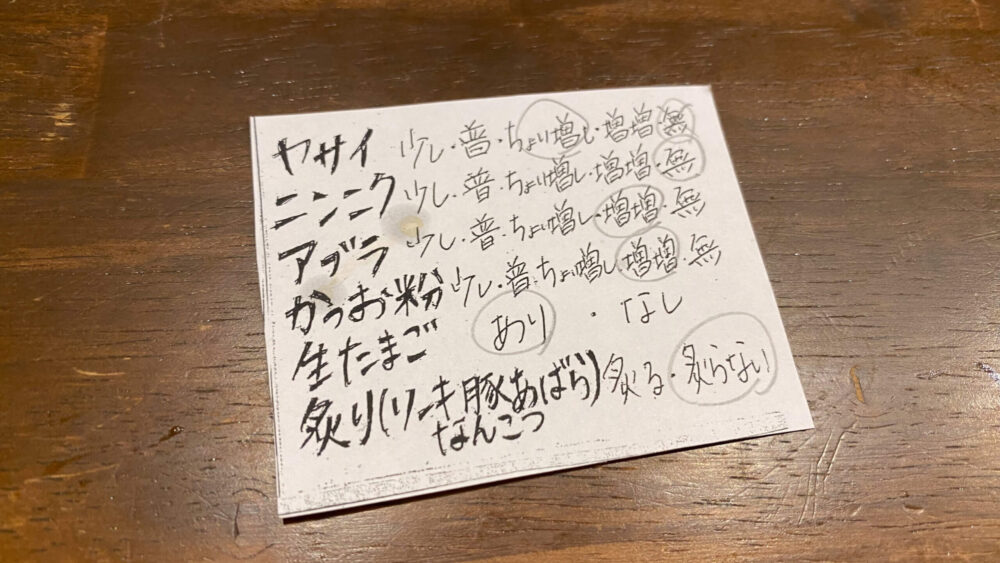 ヤサイ 少し・普・ちょい増し・増増・無
ニンニク 少し・普・ちょい増し・増増・無
アブラ 少し・普・ちょい増し・増増・無
かつお粉 少し・普・ちょい増し・増増・無
生たまご あり・なし
炙り(リーキ豚あばら) 炙る・炙らない
なんこつ